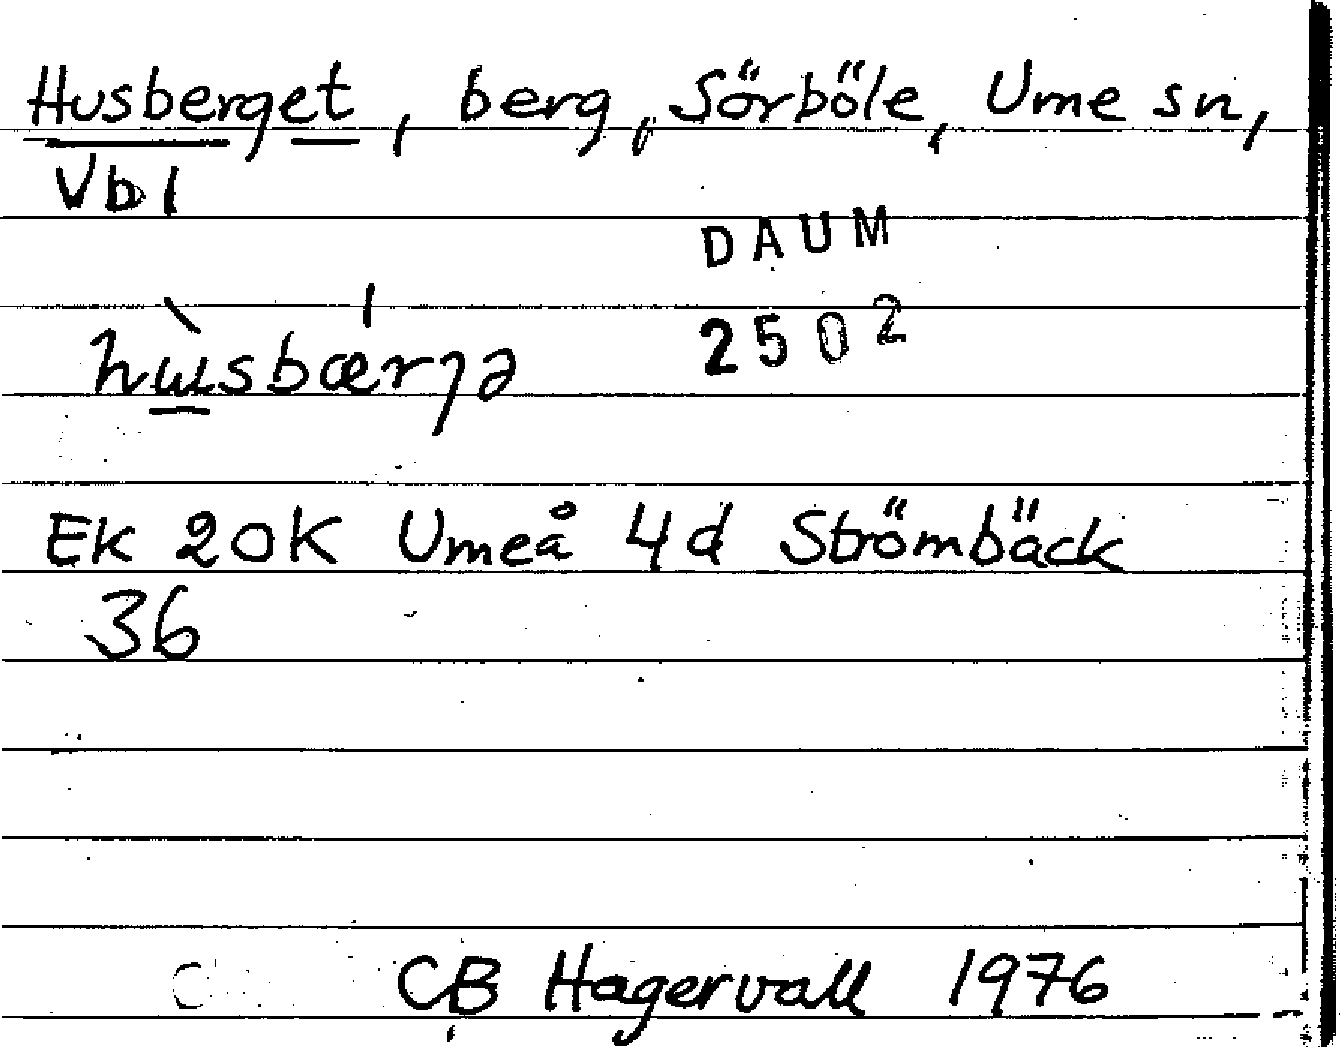 Husberget, berg, Sörböle, Ume sn,
Vbl
DAUM
2502
EK 20K Umeå 4d Strömbäck
36
CB Hagervall 1976